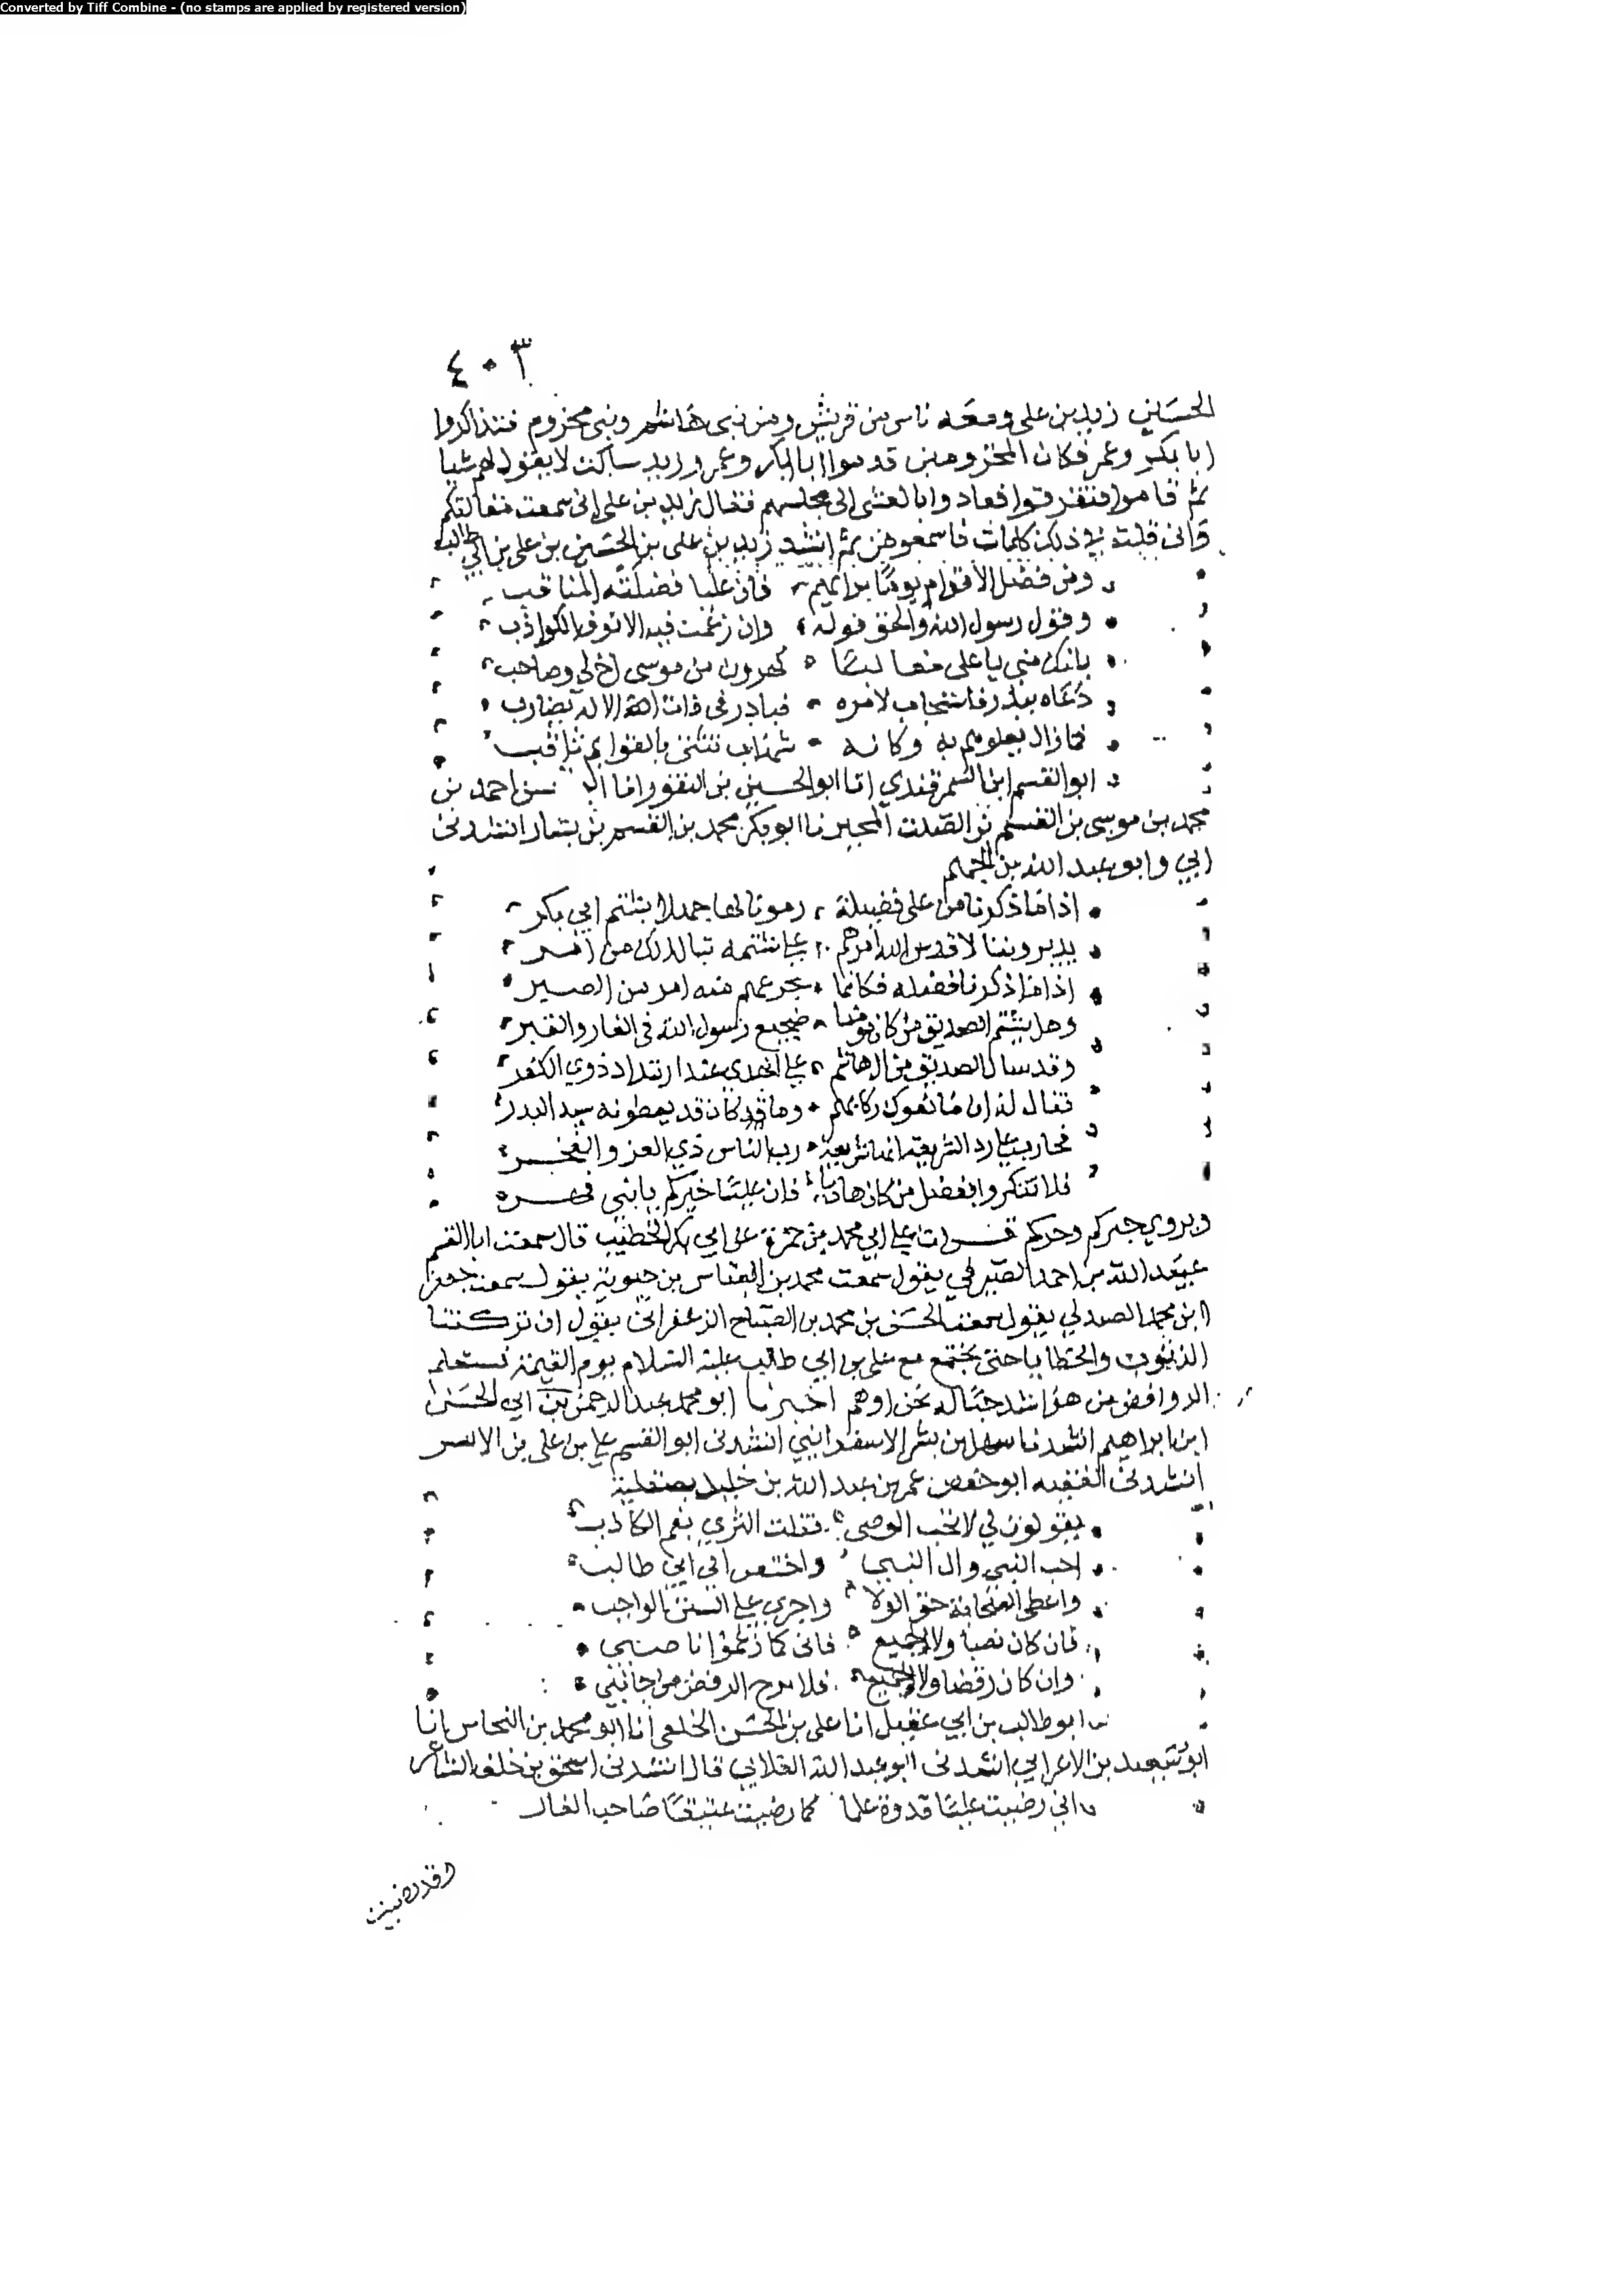 Converted by Tiff Combine - (no stamps are applied by registered version)
٤٠٣
الحسين زيد بن علي ومعه ناس من قريش ومن بني هاشم وبني مخزوم فتذاكروا
ابا بكر وعمر فكان المخزومين قدموا ابا بكر وعمر وزيد ساكت لا يقول لهم شيا
ثم قاموا فتفرقوا فعادوا بالعشي الى مجلسهم فقال زيد بن علي اني سمعت مقالتكم
واني قلت في ذلك كلمات فاسمعوهن ثم انشد زيد بن علي بن الحسين بن علي بن ابي طالب
ومن فضل الاقوام يوما برايهم فان عليا فضلته المناقب
وقول رسول الله والحق قوله وان رغمت فيه الانوف الكواذب
بانك مني يا علي معالنا كهرون من موسى اخ لي وصاحب
دعاه ببدر فاستجاب لامره فبادر في ذات الاله يضارب
فمازال يعلوهم به وكانه شهاب تثنى بالقوايم ثاقب
ابو القسم ابن السمرقندي انا ابو الحسين بن النقور انا احمد بن
محمد بن موسى بن القسم بن الصلت المجبر نا ابو بكر محمد بن القسم بن بشار انشدني
ابي وابو عبد الله بن الجهم
اذا ما ذكرنا من علي فضيلة رمونا لها جهلا بشتم ابي بكر
يديروننا لا قدس الله امرهم على شتمه تبا لذلك من امر
اذا ما ذكرنا فضله فكانما نجرعهم منه امر من الصبر
وهل يشتم الصديق من كان مومنا ضجيع رسول الله في الغار والقبر
وقد سال الصديق من ال هاشم على الهدى عند ارتداد ذوي الكفر
فقال له ان مانعوك زكاتهم وما قد كان قد يعطونه سيد البدر
فحارب على رد الشريعة انها شريعة رب الناس ذي العز والفخر
فلا تنكروا تفضيل من كان هاديا فان عليا خيركم يا بني فهر
ويروى حبركم وخيركم قرات على ابي محمد بن حمزة على ابي بكر الخطيب قال سمعت ابا القسم
عبيد الله بن احمد الصيرفي يقول سمعت محمد بن العباس بن حيوية يقول سمعت جعفر
ابن محمد الصندلي يقول سمعت الحسن بن محمد بن الصباح الزعفراني يقول ان تركتنا
الذنوب والخطايا حتى نجتمع مع علي بن ابي طالب عليه السلام يوم القيمة فستعلم
الروافض من هو اشد حبا له نحن او هم اخبرنا ابو محمد عبد الرحمن بن ابي الحسن
ابن ابراهيم انشدنا سهل بن بشر الاسفرايني انشدني ابو القسم علي بن علي بن
انشدني الفقيه ابو حفص عمر بن عبد الله بن خليد بصقلية
يقولون لي لا تحب الوصي فقلت الثرى بفم الكاذب
احب النبي وال النبي واختص ال ابي طالب
واعطي الصحابة حق الولا واجري على السنن الواجب
فان كان نصبا ولاء الجميع فاني كما زعموا ناصبي
وان كان رفضا ولاء الجميع فلا برح الرفض من جانبي
ابو طالب بن ابي عقيل انا علي بن الحسن الخلعي انا ابو محمد بن النحاس انا
ابو سعيد بن الاعرابي انشدني ابو عبد الله الغلابي قال انشدني اسحق بن خلف الشاعر
اني رضيت عليا قدوة علما كما رضيت عتيقا صاحب الغار
وقد رضيت